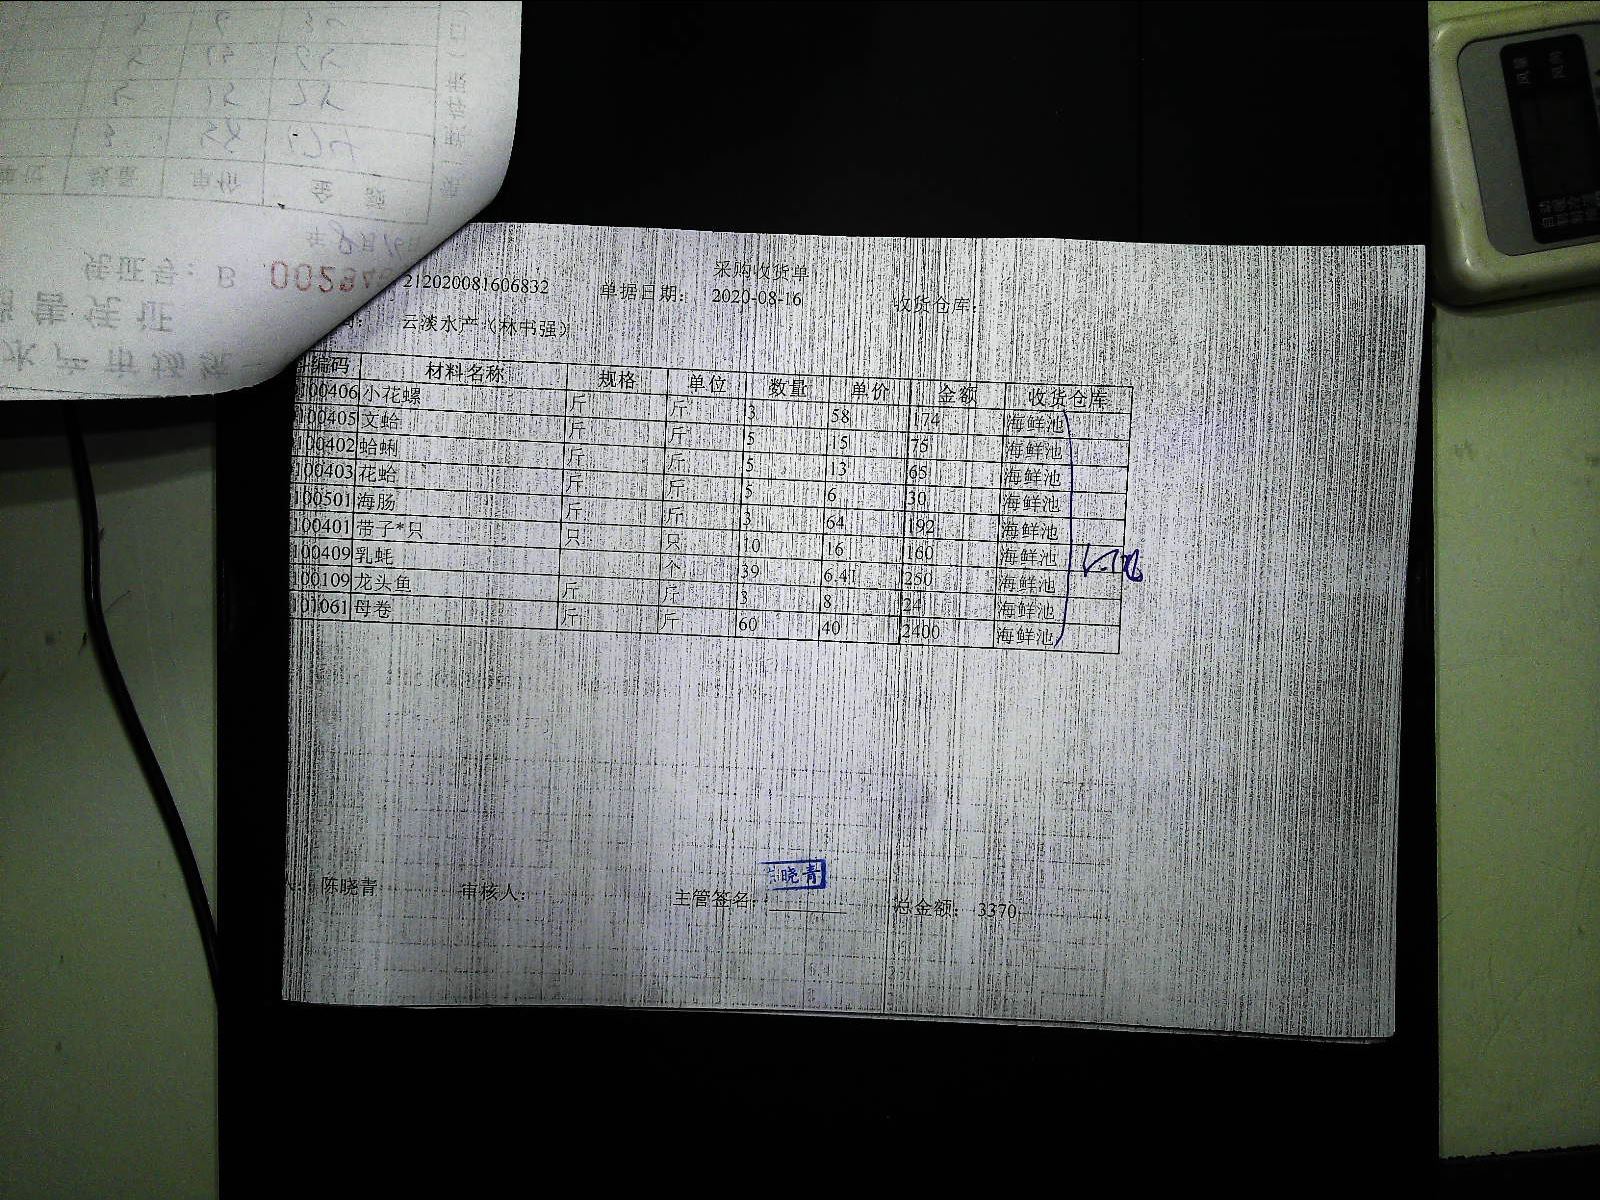 采购收货单
212020081606832 单据日期： 2020-08-16 收货仓库：
云淡水产（林书强）
编码 材料名称 规格 单位 数量 单价 金额 收货仓库
100406 小花螺 斤 斤 3 58 174 海鲜池
100405 文蛤 斤 斤 5 15 75 海鲜池
100402 蛤蜊 斤 斤 5 13 65 海鲜池
100403 花蛤 斤 斤 5 6 30 海鲜池
100501 海肠 斤 斤 3 64 192 海鲜池
100401 带子*只 只 只 10 16 160 海鲜池
100409 乳蚝 个 39 6.41 250 海鲜池
100109 龙头鱼 斤 斤 3 8 24 海鲜池
101061 母卷 斤 斤 60 40 2400 海鲜池
陈晓青 审核人： 主管签名： 晓青 总金额： 3370
水产市场
售凭证
凭证号： B 00294
年8月16日
数量 单价 金额